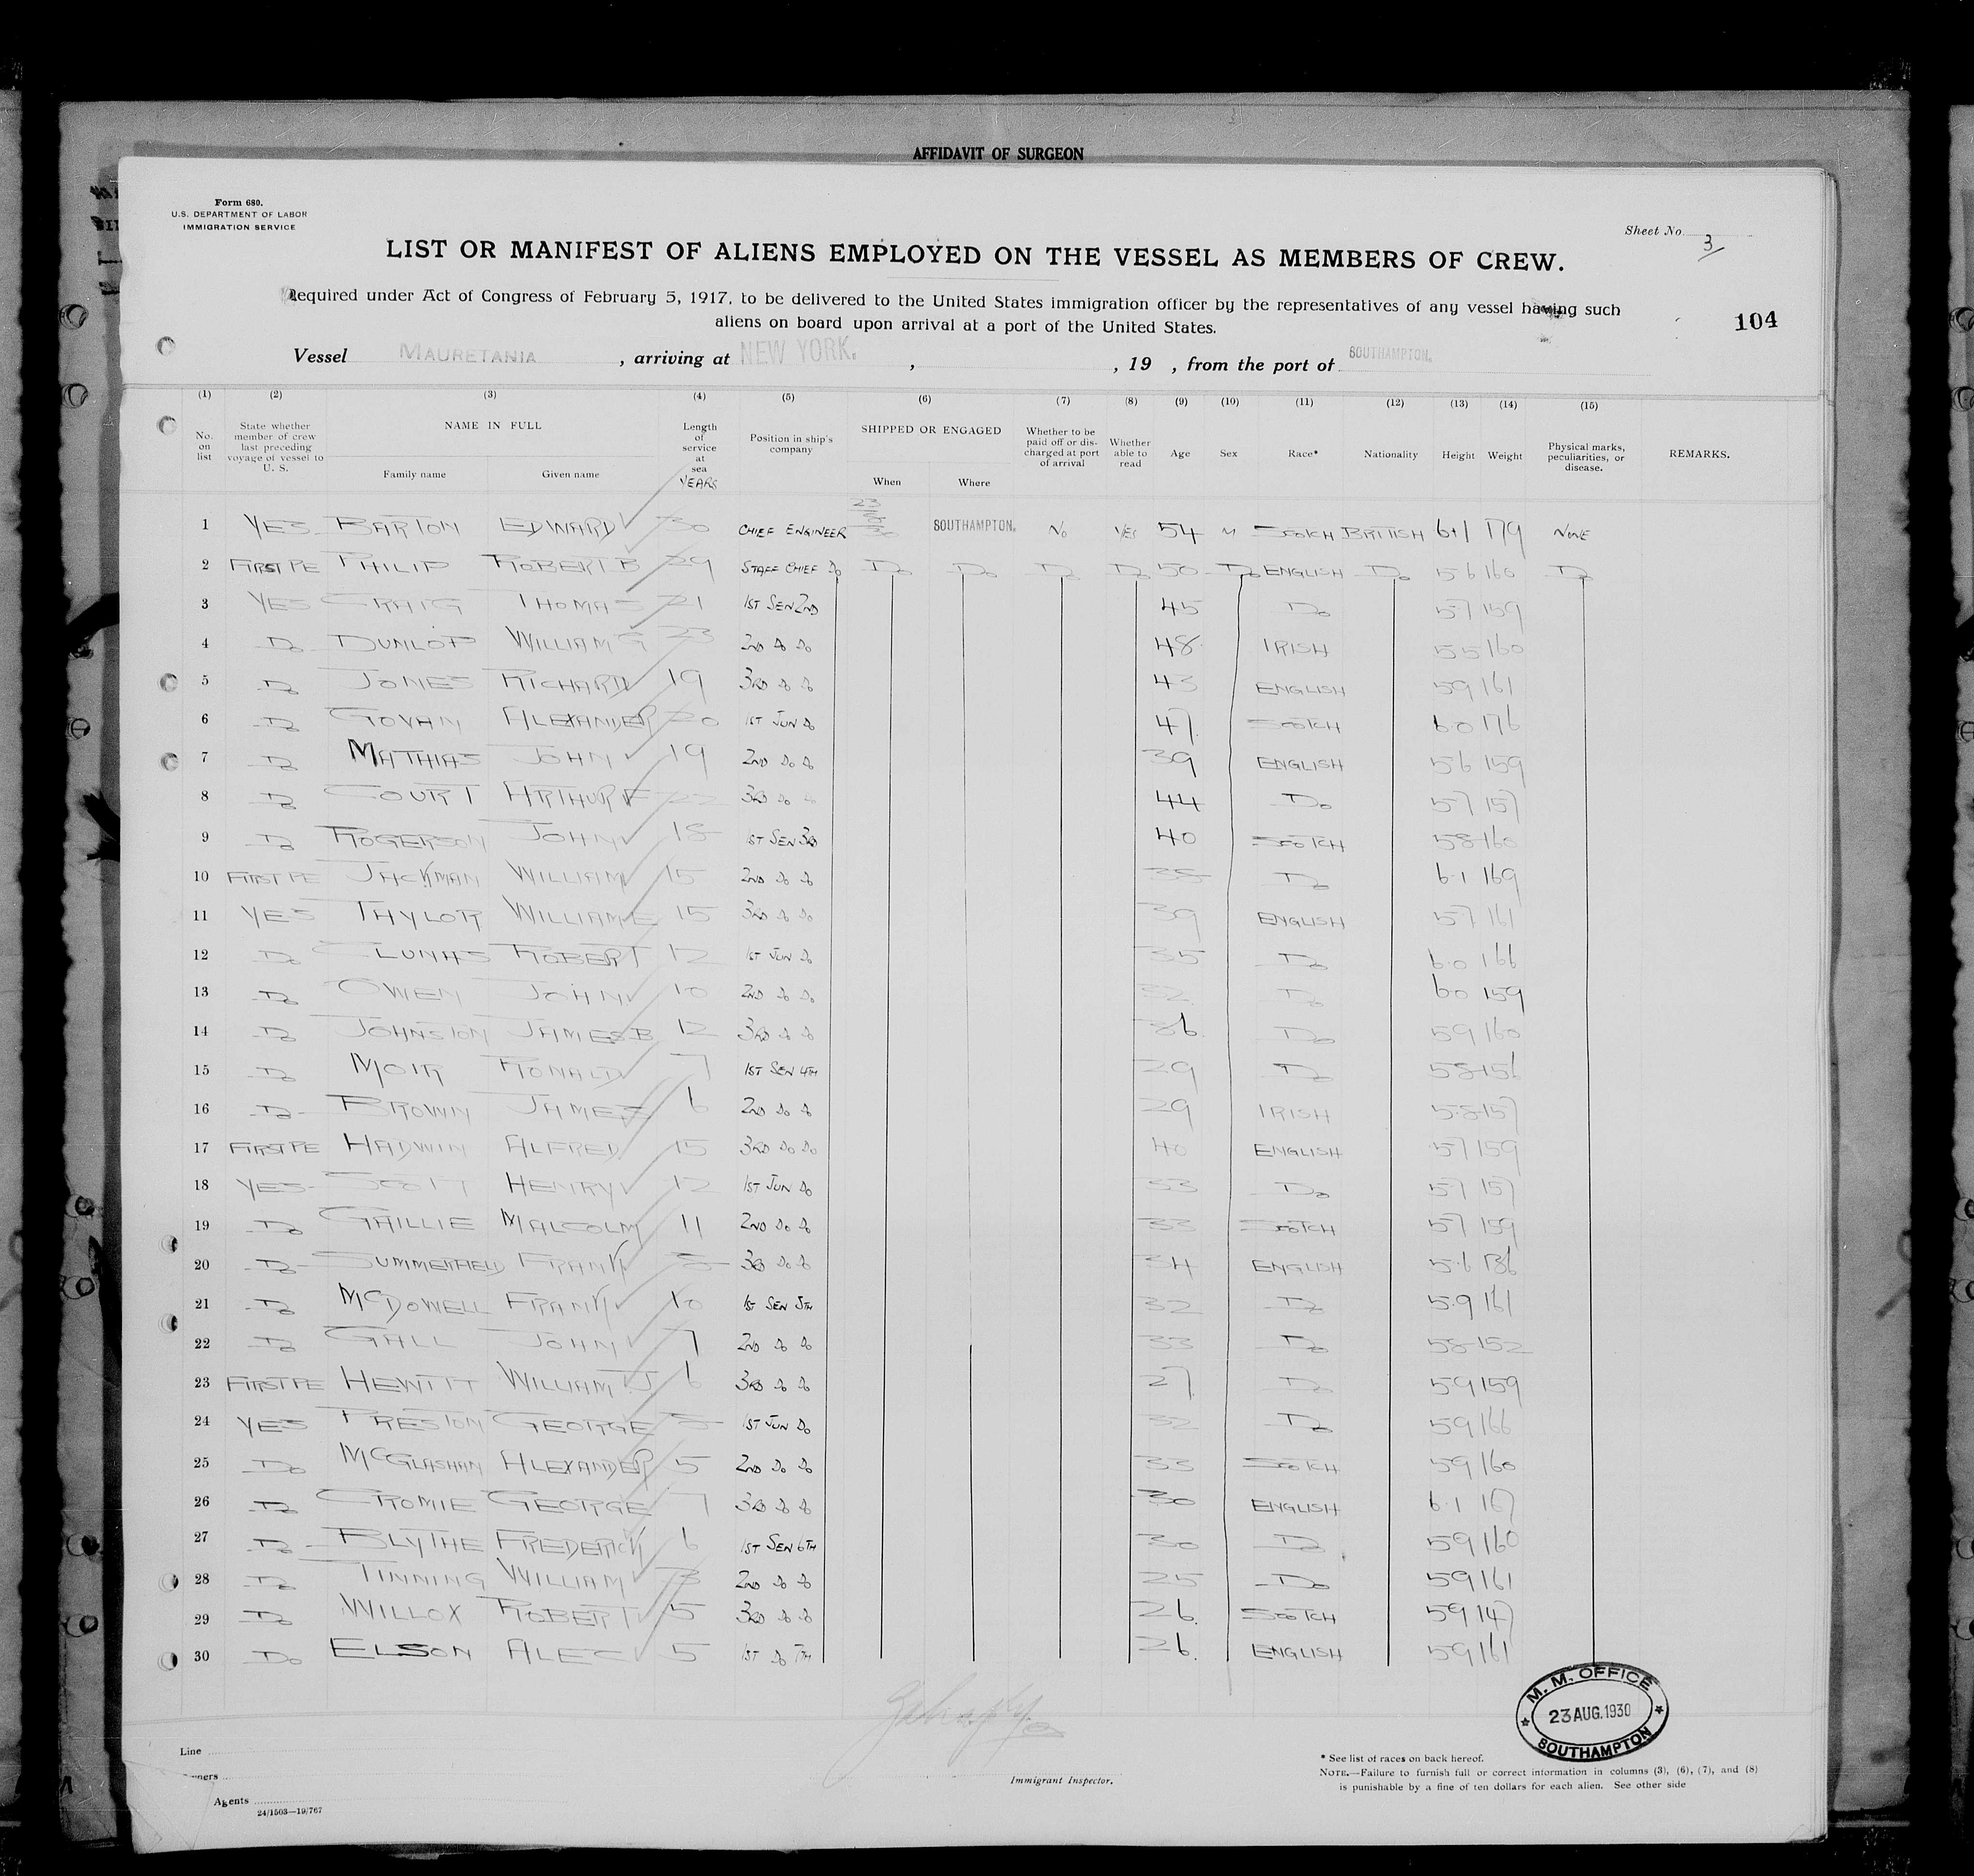 AFFIDAVIT OF SURGEON
Form 680.
U.S. DEPARTMENT OF LABOR
IMMIGRATION SERVICE
Sheet No. 3
LIST OR MANIFEST OF ALIENS EMPLOYED ON THE VESSEL AS MEMBERS OF CREW.
Required under Act of Congress of February 5, 1917, to be delivered to the United States immigration officer by the representatives of any vessel having such
aliens on board upon arrival at a port of the United States.
104
Vessel MAURETANIA, arriving at NEW YORK. , , 19 , from the port of SOUTHAMPTON.
(1) (2) (3) (4) (5) (6) (7) (8) (9) (10) (11) (12) (13) (14) (15)
No. on list
State whether member of crew last preceding voyage of vessel to U. S.
NAME IN FULL
Family name
Given name
Length of service at sea
YEARS
Position in ship's company
SHIPPED OR ENGAGED
When
Where
Whether to be paid off or discharged at port of arrival
Whether able to read
Age
Sex
Race*
Nationality
Height
Weight
Physical marks, peculiarities, or disease.
REMARKS.
1 YES BARTON EDWARD 30 CHIEF ENGINEER SOUTHAMPTON. No YES 54 M SCOTCH BRITISH 6+1 179 NONE
2 FIRST PE PHILIP ROBERT B 29 STAFF CHIEF Do Do Do Do Do 50 Do ENGLISH Do 56 160 Do
3 YES CRAIG THOMAS 21 1ST SEN 2ND 45 Do 57 159
4 Do DUNLOP WILLIAM G 23 2ND Do Do 48 IRISH 55 160
5 Do JONES RICHARD 19 3RD Do Do 43 ENGLISH 59 161
6 Do GOVAN ALEXANDER 20 1ST JUN Do 47 SCOTCH 60 176
7 Do MATTHIAS JOHN 19 2ND Do Do 39 ENGLISH 56 159
8 Do COURT ARTHUR F 22 3RD Do Do 44 Do 57 157
9 Do ROGERSON JOHN 18 1ST SEN 3RD 40 SCOTCH 58 160
10 FIRST PE JACKMAN WILLIAM 15 2ND Do Do 38 Do 6·1 169
11 YES TAYLOR WILLIAM E 15 3RD Do Do 39 ENGLISH 57 161
12 Do CLUNAS ROBERT 12 1ST JUN Do 35 Do 6·0 166
13 Do OWEN JOHN 10 2ND Do Do 32 Do 60 159
14 Do JOHNSTON JAMES B 12 3RD Do Do 36 Do 59 160
15 Do MOIR RONALD 7 1ST SEN 4TH 29 Do 58 156
16 Do BROWN JAMES 6 2ND Do Do 29 IRISH 5·8 157
17 FIRST PE HADWIN ALFRED 15 3RD Do Do 40 ENGLISH 57 159
18 YES SCOTT HENRY 12 1ST JUN Do 33 Do 57 157
19 Do GAILLIE MALCOLM 11 2ND Do Do 33 SCOTCH 57 159
20 Do SUMMERFIELD FRANK 3RD Do Do 34 ENGLISH 5·6 136
21 Do McDOWELL FRANK 10 1ST SEN 5TH 32 Do 5·9 161
22 Do GALL JOHN 7 2ND Do Do 33 Do 58 152
23 FIRST PE HEWITT WILLIAM J 6 3RD Do Do 27 Do 59 159
24 YES PRESTON GEORGE 1ST JUN Do 32 Do 59 166
25 Do McGLASHAN ALEXANDER 5 2ND Do Do 33 SCOTCH 59 160
26 Do CROMIE GEORGE 7 3RD Do Do 30 ENGLISH 6·1 167
27 Do BLYTHE FREDERICK 6 1ST SEN 6TH 30 Do 59 160
28 Do TINNING WILLIAM 3 2ND Do Do 25 Do 59 161
29 Do WILLOX ROBERT 5 3RD Do Do 26. SCOTCH 59 147
30 Do ELSON ALEC 5 1ST Do 7TH 26. ENGLISH 59 161
M. M. OFFICE
23 AUG. 1930
SOUTHAMPTON
Line
Agents
24/1503—19/767
Immigrant Inspector.
* See list of races on back hereof.
NOTE.—Failure to furnish full or correct information in columns (3), (6), (7), and (8)
is punishable by a fine of ten dollars for each alien. See other side